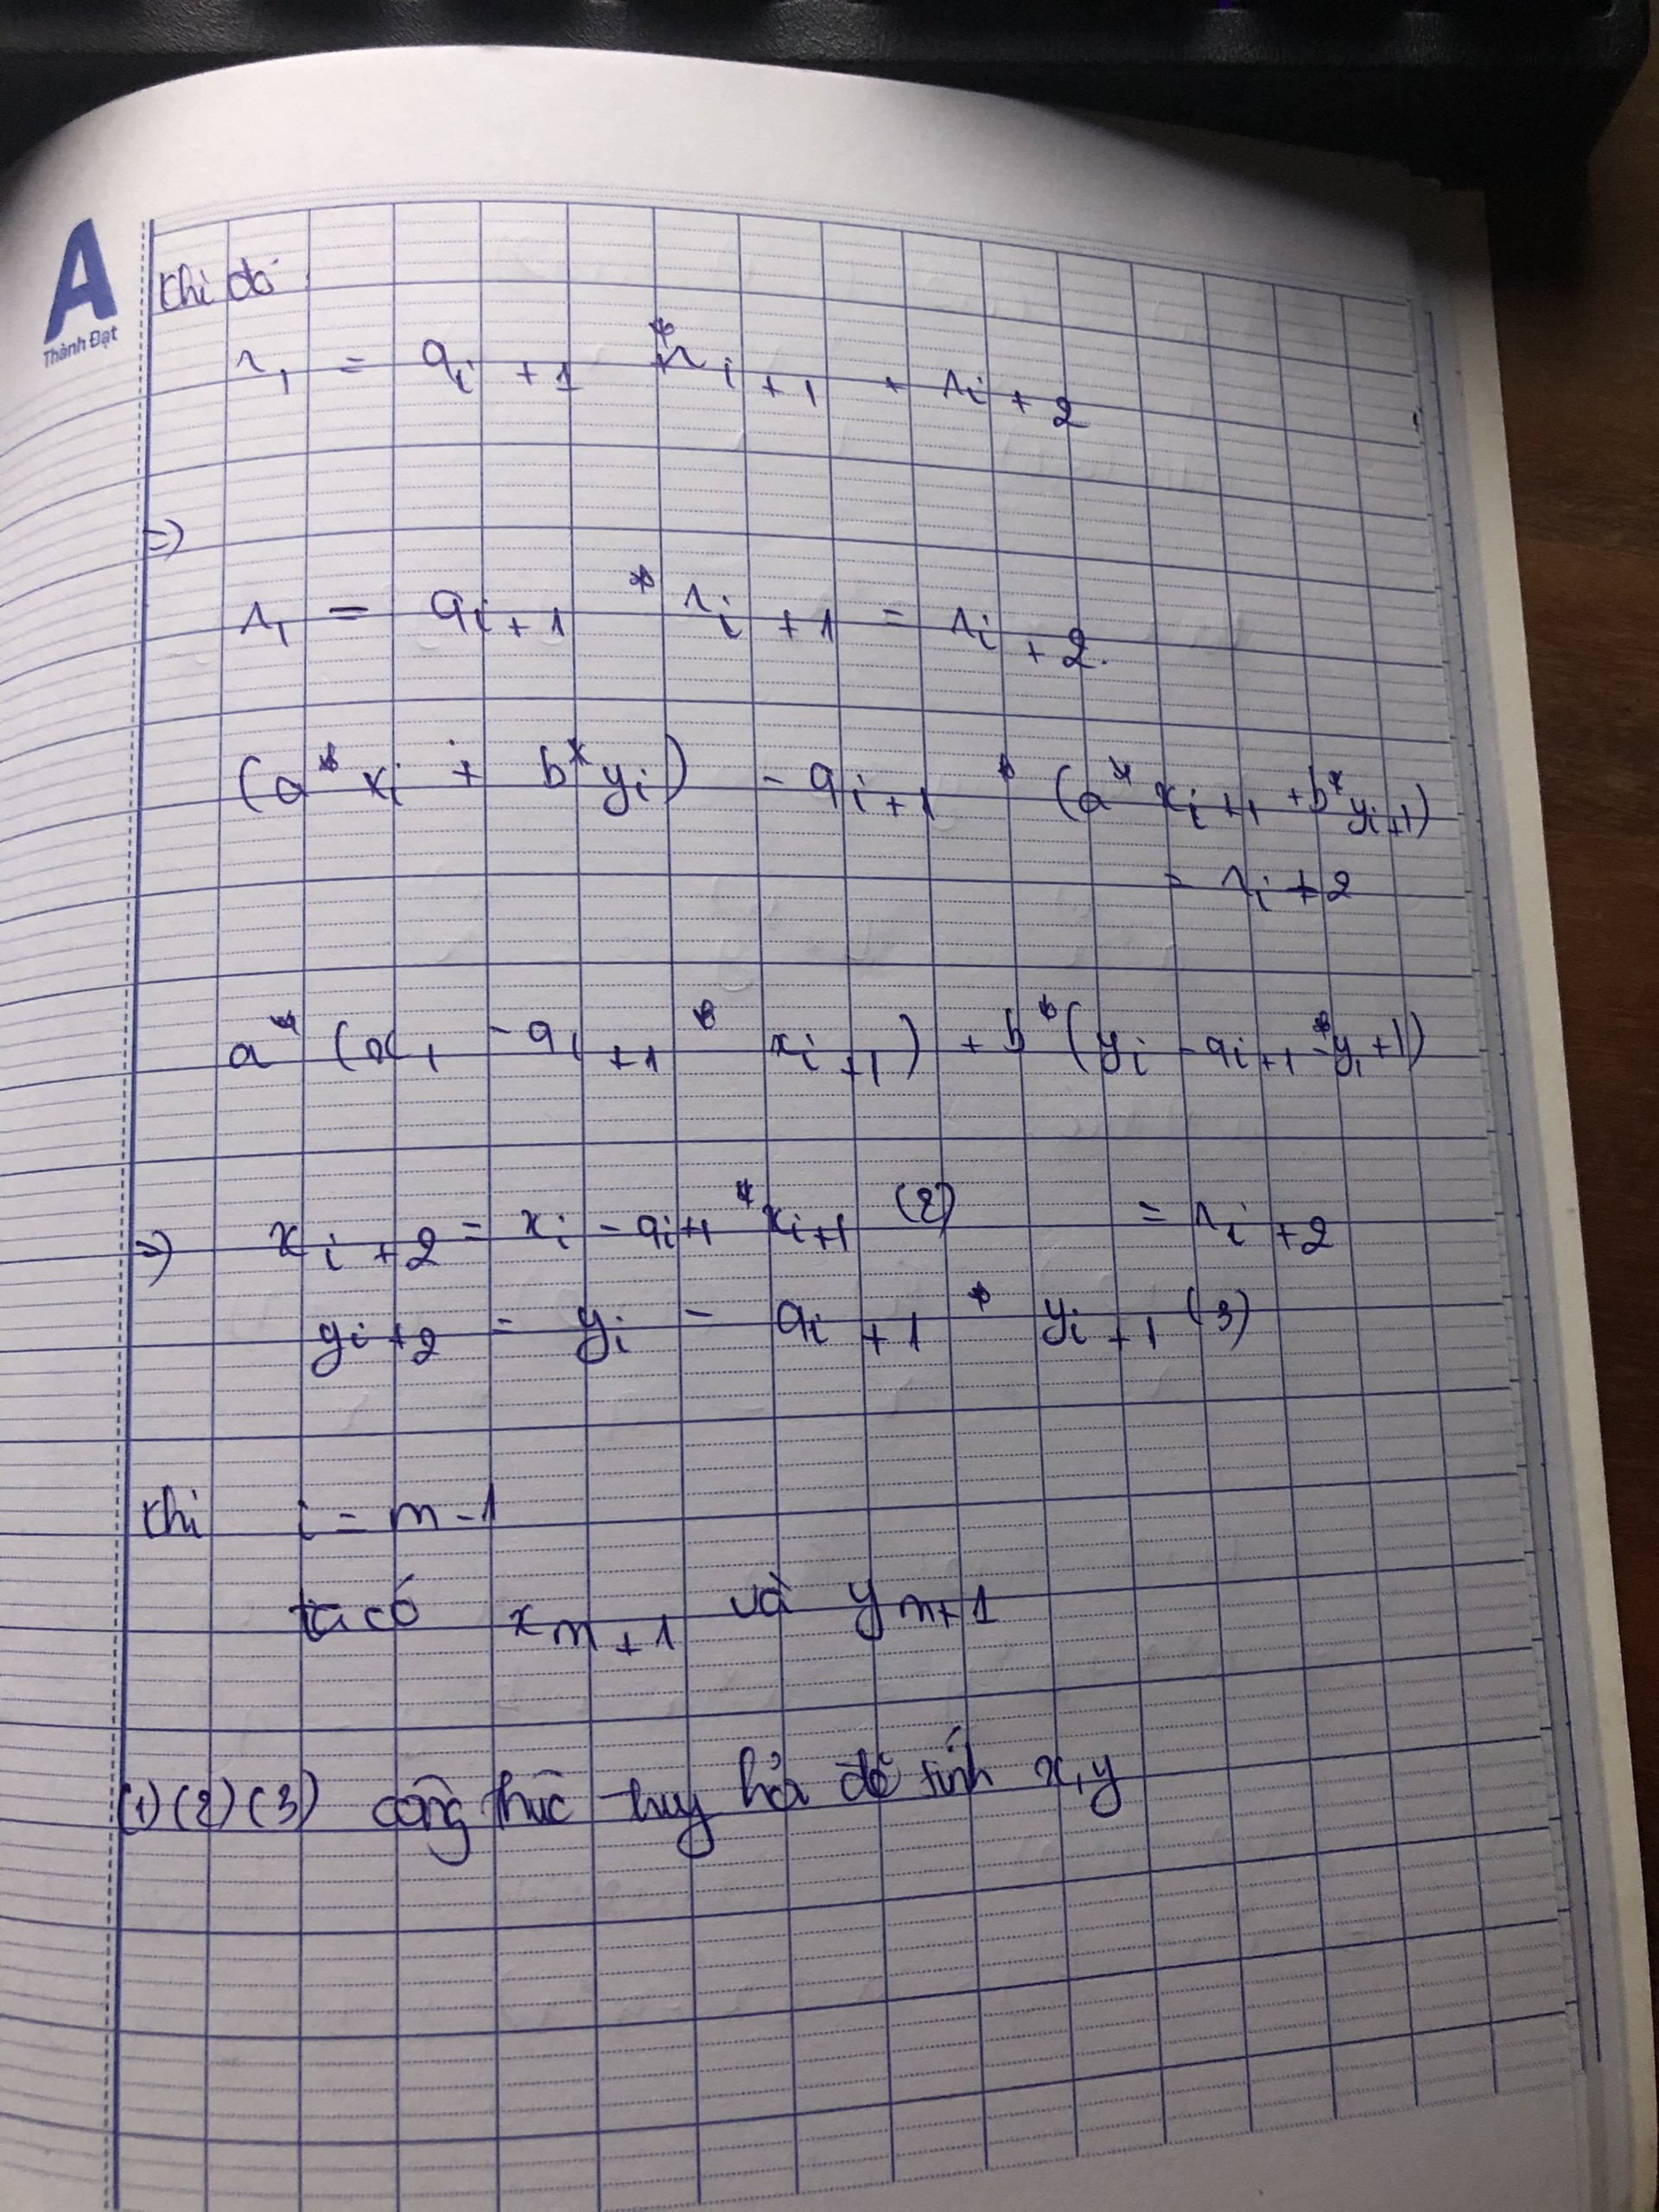 A
Thành Đạt
Khi đó:
r₁ = qᵢ + 1 * rᵢ + 1 + rᵢ + 2
=>
r₁ = qᵢ + 1 * rᵢ + 1 = rᵢ + 2.
(a * xᵢ + b * yᵢ) - qᵢ + 1 * (a * xᵢ + 1 + b * yᵢ + 1)
= rᵢ + 2
a * (x₁ - qᵢ + 1 * xᵢ + 1) + b * (yᵢ - qᵢ + 1 * yᵢ + 1)
=> xᵢ + 2 = xᵢ - qᵢ + 1 * xᵢ + 1 (2) = rᵢ + 2
yᵢ + 2 = yᵢ - qᵢ + 1 * yᵢ + 1 (3)
Khi i = m - 1
ta có x m + 1 và y m + 1
(1) (2) (3) công thức truy hồi để tính x, y